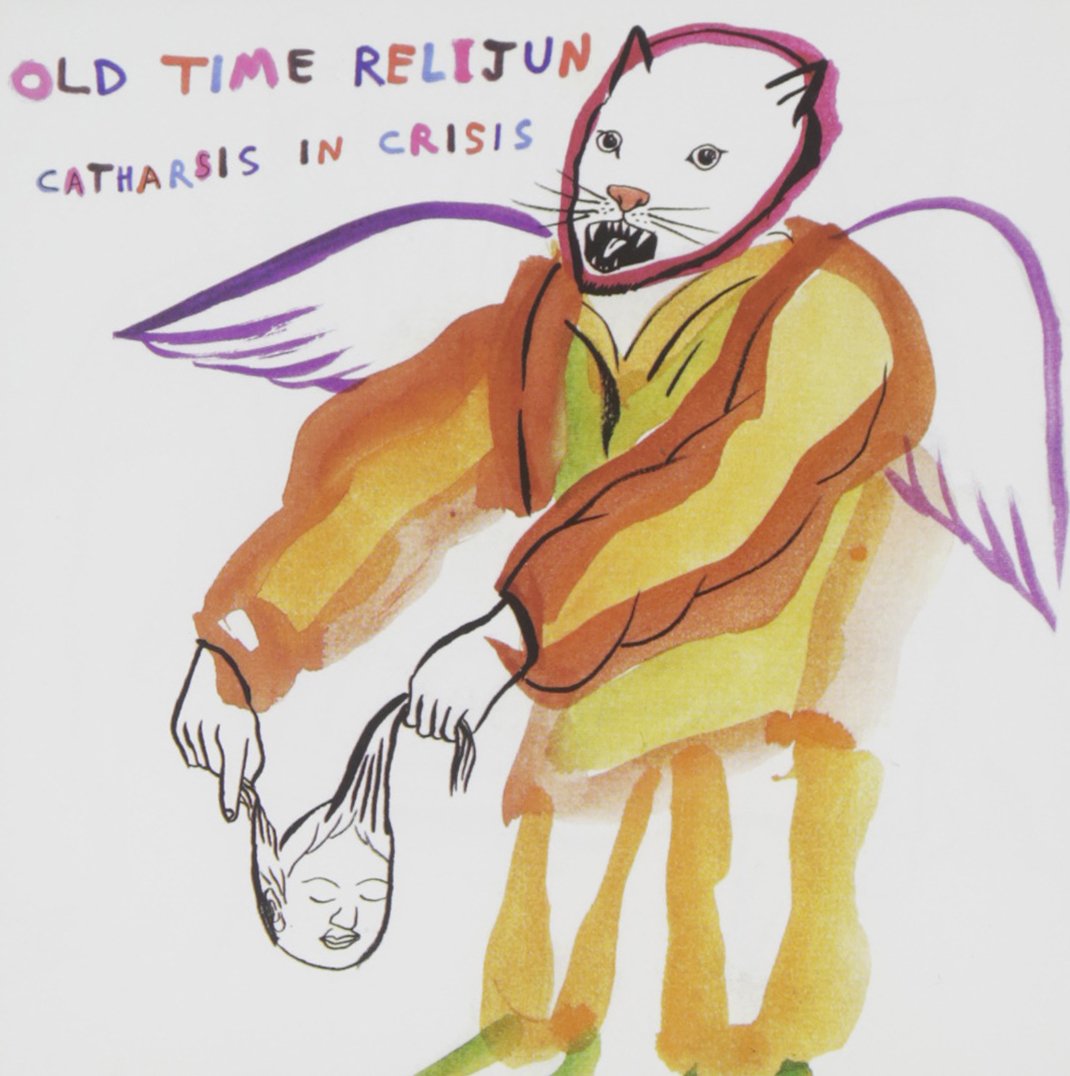 OLD TIME RELIJUN
CATHARSIS IN CRISIS